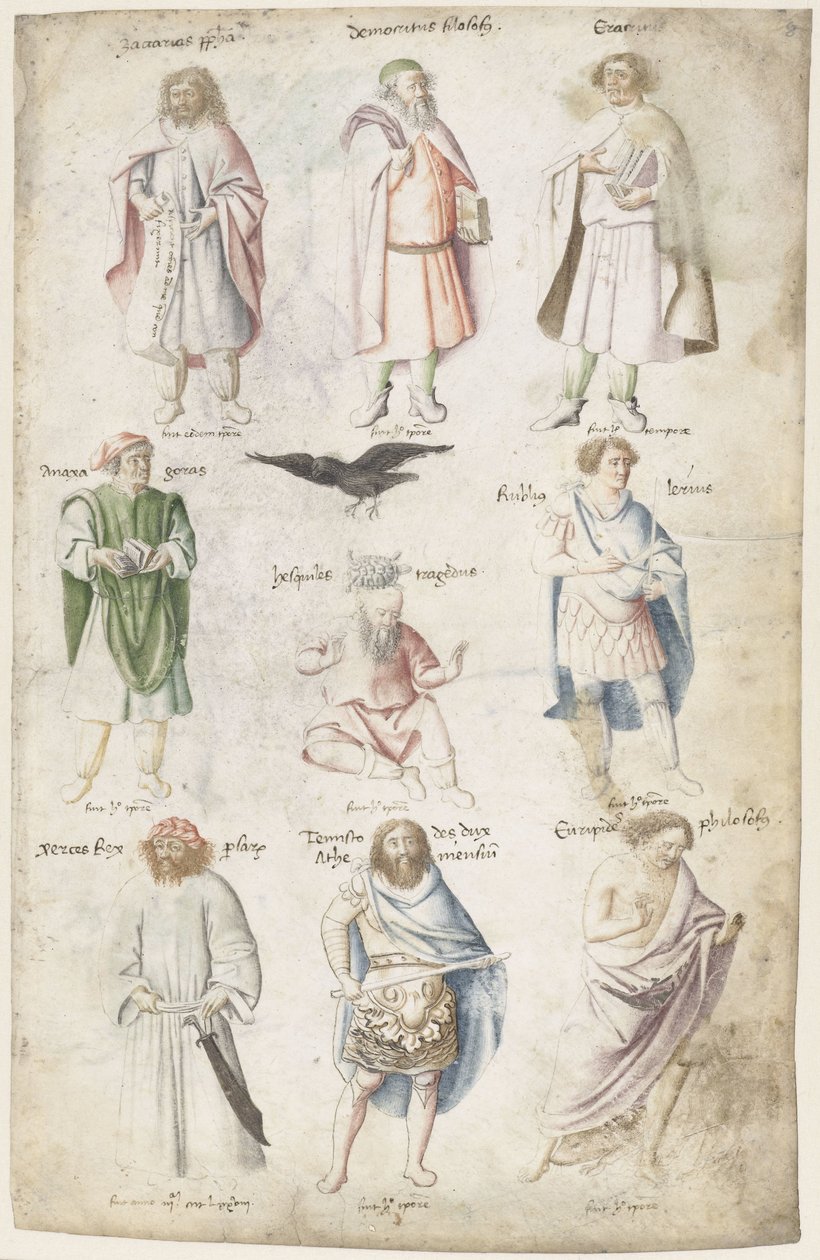 Zaccarias ppħa
Democritus filosofꝯ.
Eracritus
8
fuit eodem tp̄ore
fuit h° tp̄ore
fuit h° tempore
Anaxa goras
Rubliꝯ lerius
hesquiles tragedus.
fuit h° tp̄ore
fuit h° tp̄ore
fuit h° tp̄ore
xerces Rex psarꝝ
Temisto des dux
Athe niensiū
Euripides philosofꝯ.
fuit anno
fuit h° tp̄ore
fuit h° tp̄ore